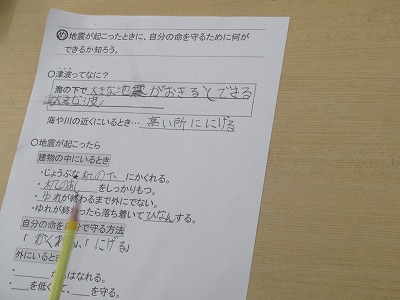 め 地震が起こったときに、自分の命を守るために何が
できるか知ろう。
○津波ってなに？
海の下で大きな地震がおきるとできる
大きな波。
海や川の近くにいるとき…高い所ににげる
○地震が起こったら
建物の中にいるとき
・じょうぶな机の下にかくれる。
・机のあしをしっかりもつ。
・ゆれが終わるまで外にでない。
・ゆれが終わったら落ち着いてひなんする。
自分の命を自分で守る方法
「かくれる」、「にげる」
外にいると
・からはなれる。
・を低くして、を守る。